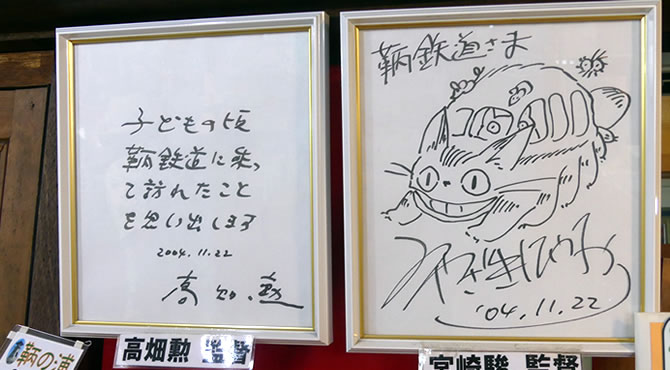 子どもの頃
鞆鉄道に乗っ
て訪れたこと
を思い出します
2004.11.22
高畑勲
高畑勲 監督
鞆鉄道さま
みやざきはやお
'04.11.22
宮崎駿 監督
鞆の浦